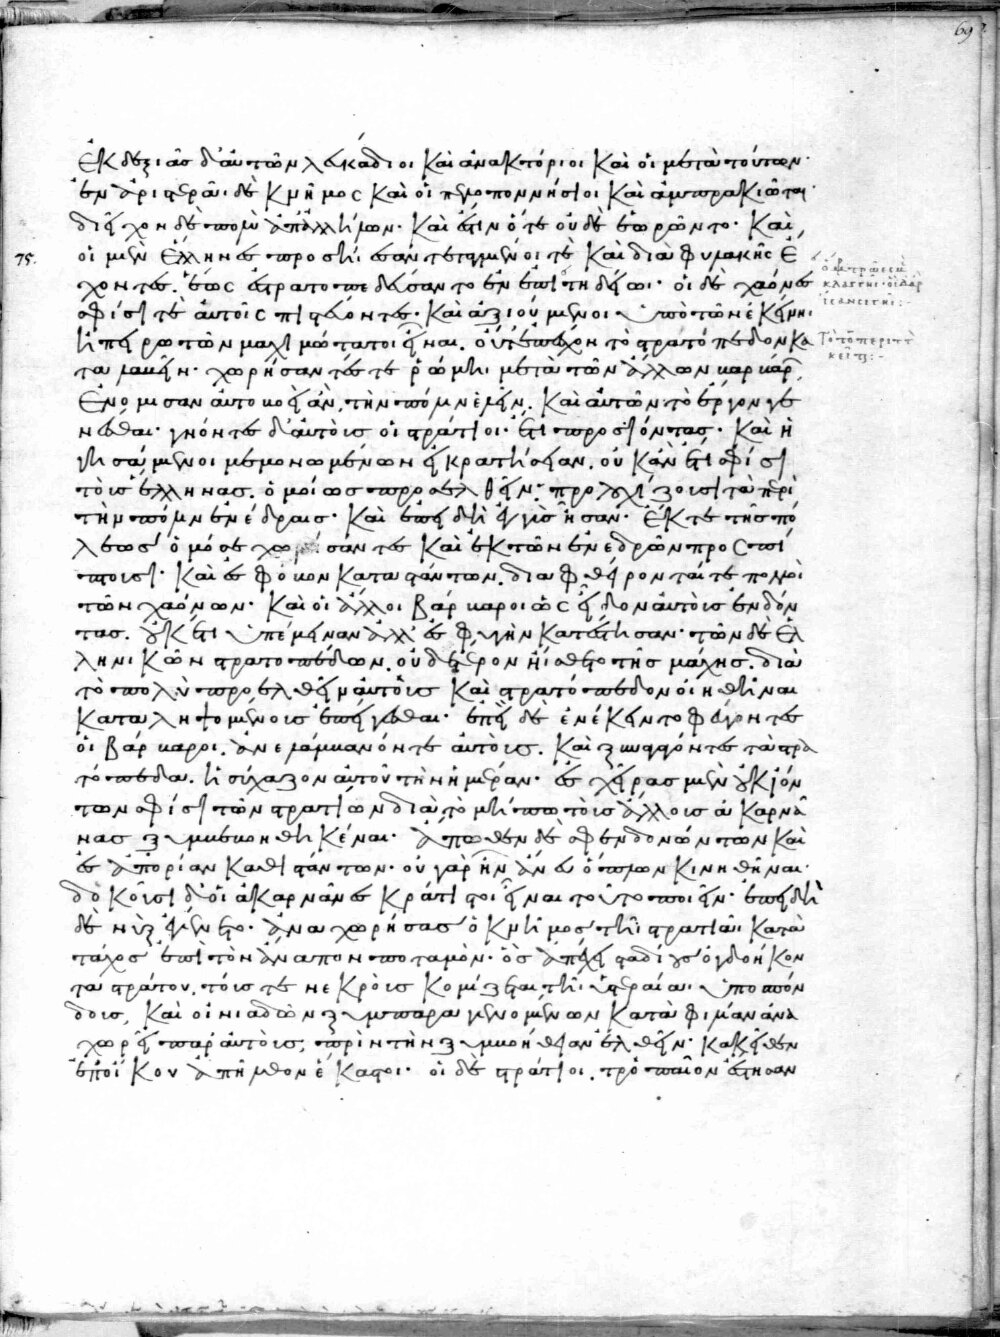 69
ἐκ δεξιᾶς δ' αὐτῶν λευκάδιοι καὶ ἀνακτόριοι καὶ οἱ μετὰ τούτων·
ἐν ἀριστερᾶι δὲ κνῆμος καὶ οἱ πελοποννήσιοι καὶ ἀμπρακιῶται·
διεῖχον δὲ πολὺ ἀπ' ἀλλήλων· καὶ ἔστιν ὅτε οὐδὲ ἑωρῶντο· καὶ
75. οἱ μὲν ἕλληνες προσήιεσαν τεταγμένοι τὲ καὶ διὰ φυλακῆς ἔ
χοντες. ἕως ἐστρατοπεδεύσαντο ἐν ἐπιτηδείωι· οἱ δὲ χάονες
σφίσι τὲ αὐτοῖς πιστεύοντες· καὶ ἀξιούμενοι ὑπὸ τῶν ἐκείνηι
ἠπειρωτῶν μαχιμώτατοι εἶναι. οὔτε ἐπέσχον τὸ στρατόπεδον κα
ταλαβεῖν· χωρήσαντές τε ῥώμηι μετὰ τῶν ἄλλων βαρβάρων
ἐνόμισαν αὐτοβοεὶ ἂν, τὴν πόλιν ἑλεῖν. καὶ αὐτῶν τὸ ἔργον γε
νέσθαι· γνόντες δ' αὐτοὺς οἱ στράτιοι· ἔτι προσιόντας· καὶ ἡ
γησάμενοι μεμονωμένων εἰ κρατήσειαν. οὐκ ἂν ἔτι σφίσι
τοὺς ἕλληνας. ὁμοίως προσελθεῖν· προλοχίζουσι τὰ περὶ
τὴν πόλιν ἐνέδραις· καὶ ἐπειδὴ ἐγγὺς ἦσαν· ἔκ τε τῆς πό
λεως ὁμόσε χωρήσαντες καὶ ἐκ τῶν ἐνεδρῶν προσπί
πτουσι· καὶ ἐς φόβον καταστάντων. διαφθείρονταί τε πολλοὶ
τῶν χαόνων· καὶ οἱ ἄλλοι βάρβαροι ὡς εἶδον αὐτοὺς ἐνδόν
τας. οὐκέτι ὑπέμειναν ἀλλ' ἐς φυγὴν κατέστησαν· τῶν δὲ ἑλ
ληνικῶν στρατοπέδων. οὐδέτερον ἤισθετο τῆς μάχης. διὰ
τὸ πολὺ προελθεῖν αὐτοὺς καὶ στρατόπεδον οἰηθῆναι
καταληψομένους ἐπείγεσθαι· ἐπεὶ δὲ ἐνέκειντο φεύγοντες
οἱ βάρβαροι. ἀνελάμβανόν τε αὐτοὺς. καὶ ξυναγαγόντες τὰ στρα
τόπεδα. ἡσύχαζον αὐτοῦ τὴν ἡμέραν· ἐς χεῖρας μὲν οὐκ ἰόν
των σφίσι τῶν στρατίων διὰ τὸ μήπω τοὺς ἄλλους ἀκαρνᾶ
νας ξυμβεβοηθηκέναι· ἄπωθεν δὲ σφενδονώντων καὶ
ἐς ἀπορίαν καθιστάντων· οὐ γὰρ ἦν ἄνευ ὅπλων κινηθῆναι·
δοκοῦσι δ' οἱ ἀκαρνᾶνες κράτιστοι εἶναι τοῦτο ποιεῖν· ἐπειδὴ
δὲ νὺξ ἐγένετο· ἀναχωρήσας ὁ κνῆμος τῆι στρατιᾶι κατὰ
τάχος ἐπὶ τὸν ἄναπον ποταμὸν· ὃς ἀπέχει σταδίους ὀγδοήκον
τα στράτου, τούς τε νεκροὺς κομίζεται τῆι ὑστεραίαι ὑποσπόν
δους, καὶ οἰνιαδῶν ξυμπαραγενομένων κατὰ φιλίαν ἀνα
χωρεῖ παρ' αὐτοὺς, πρὶν τὴν ξυμβοήθειαν ἐλθεῖν· κἀκεῖθεν
ἐπ' οἴκου ἀπῆλθον ἕκαστοι· οἱ δὲ στράτιοι. τρόπαιον ἔστησαν